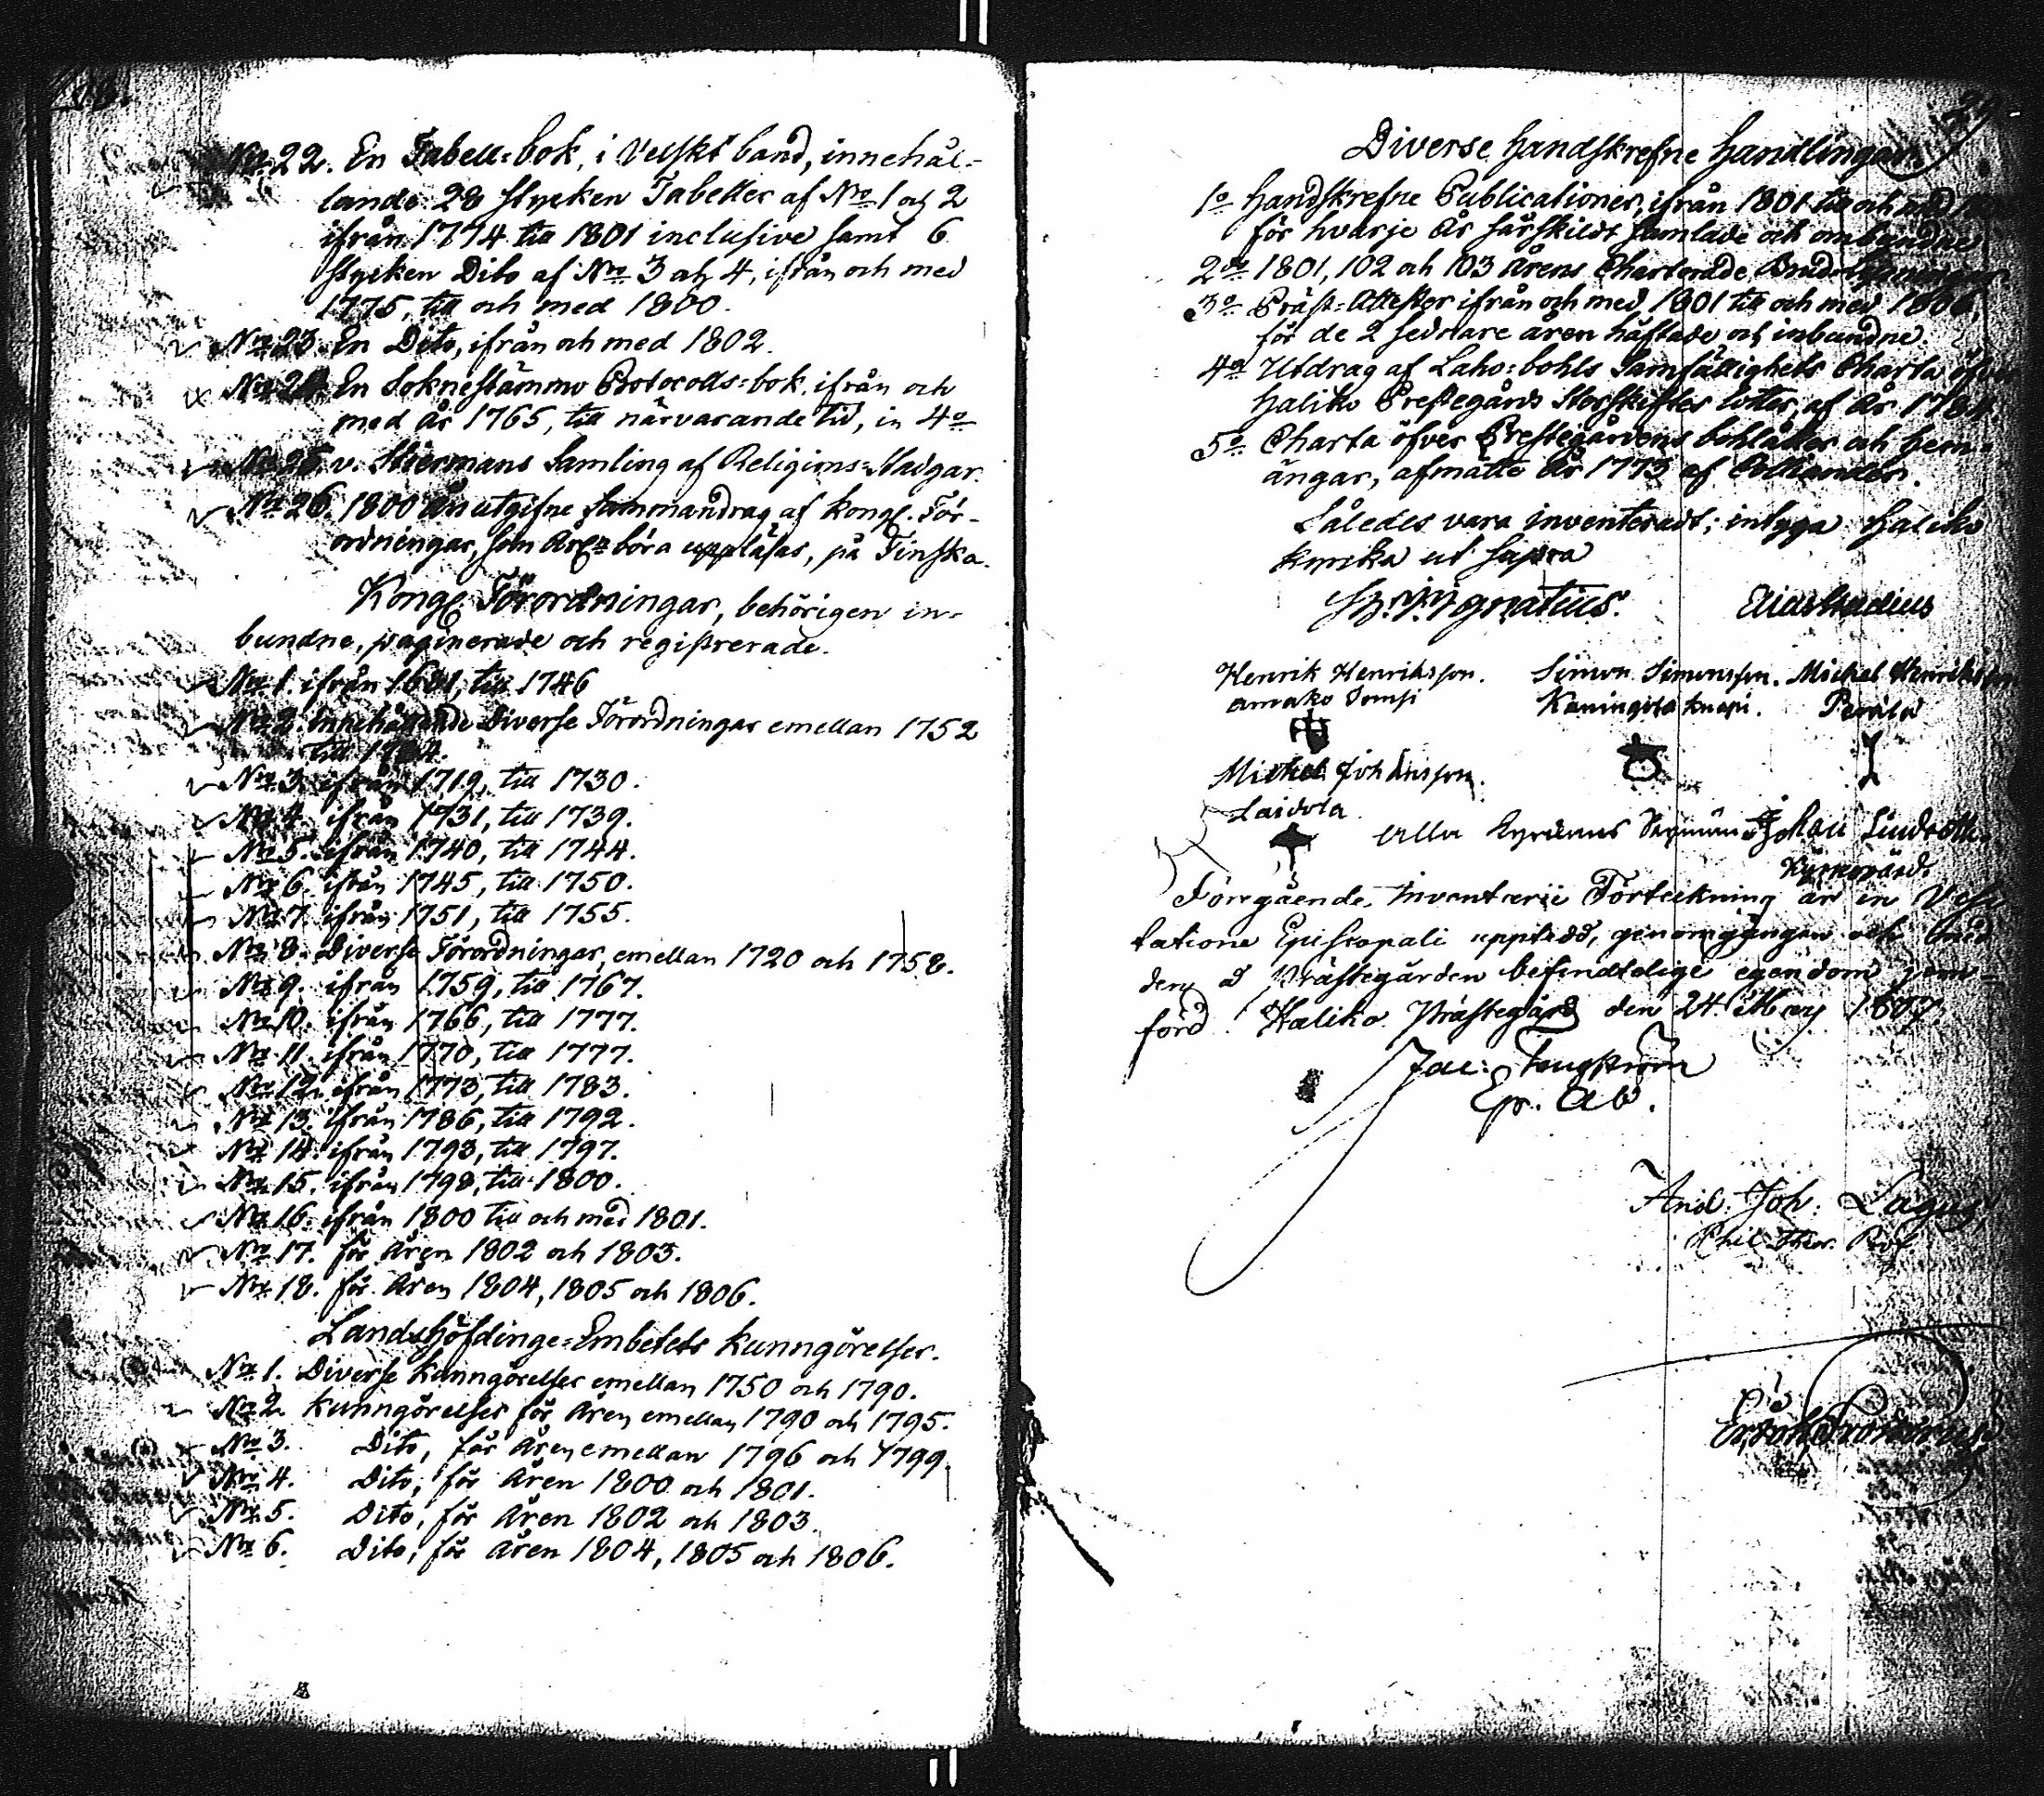 No 22. En Tabell=bok, i Velskt band, innehål-
lande 28 stycken Tabeller af No 1 och 2
ifrån 1774 till 1801 inclusive samt 6
stycken Dito af No 3 och 4, ifrån och med
1775, till och med 1800.
No 23. En Dito, ifrån och med 1802.
No 24. En Soknestämmo Protocolls=bok, ifrån och
med År 1765, till närvarande tid, in 4o
No 25. v. Stiermans Samling af Religions=Stadgar.
No 26. 1800 utgifne Sammandrag af Kongl. För-
ordningar, som böra uppläsas, på Finska.
Kongl. Förordningar, behörigen in-
bundne, paginerade och registrerade.
No 1. ifrån till 1746
No 2. Innehållande Diverse Förordningar emellan 1752
till
No 3. ifrån 1719, till 1730.
No 4. ifrån 1731, till 1739.
No 5. ifrån 1740, till 1744.
No 6. ifrån 1745, till 1750.
No 7. ifrån 1751, till 1755.
No 8. Diverse Förordningar, emellan 1720 och 1758.
No 9. ifrån 1759, till 1767.
No 10. ifrån 1766, till 1777.
No 11. ifrån 1770, till 1777.
No 12. ifrån 1773, till 1783.
No 13. ifrån 1786, till 1792.
No 14. ifrån 1793, till 1797.
No 15. ifrån 1798, till 1800.
No 16. ifrån 1800 till och med 1801.
No 17. för Åren 1802 och 1803.
No 18. för Åren 1804, 1805 och 1806.
Landshöfdinge=Embetets Kunngörelser.
No 1. Diverse Kunngörelser emellan 1750 och 1790.
No 2. Kunngörelser för Åren emellan 1790 och 1795.
No 3. Dito, för Åren emellan 1796 och 1799.
No 4. Dito, för Åren 1800 och 1801.
No 5. Dito, för Åren 1802 och 1803.
No 6. Dito, för Åren 1804, 1805 och 1806.
Diverse Handskrefne Handlingar
1o Handskrefne Publicationer, ifrån 1801 till och med
för hvarje År särskildt samlade och ombundne
2o 1801, 102 och 103 Årens Charterade
3o Präst=Attester ifrån och med 1801 till och med 1806,
för de 2 sednare åren häftade och inbundne.
4o Utdrag af Laho=bohls Samfällighets Charta öfver
Haliko Prestegårds Storskiftes lotter, af År 1784
5o Charta öfver Prestegårdens bohlåker och hem-
ängar, afmätte År 1773 af
Således vara inventeradt; intyga Haliko
Kyrka ut supra
Ignatius.
Henrik Henriksson. Simon Simonsson. Michel Henriksson
Michel Johansson.
Laidola
Johan Lindroth
Kyrkovärd.
Föregående Inventarie Förteckning är in Visi
tatione Episcopali uppläst, genomgången och med
den å Prästegården befindtelige egendom jem-
förd. Haliko Prästegård den 24 Maj 1807.
Jac: Tengström
Ep. Ab.
And: Joh: Lagus,